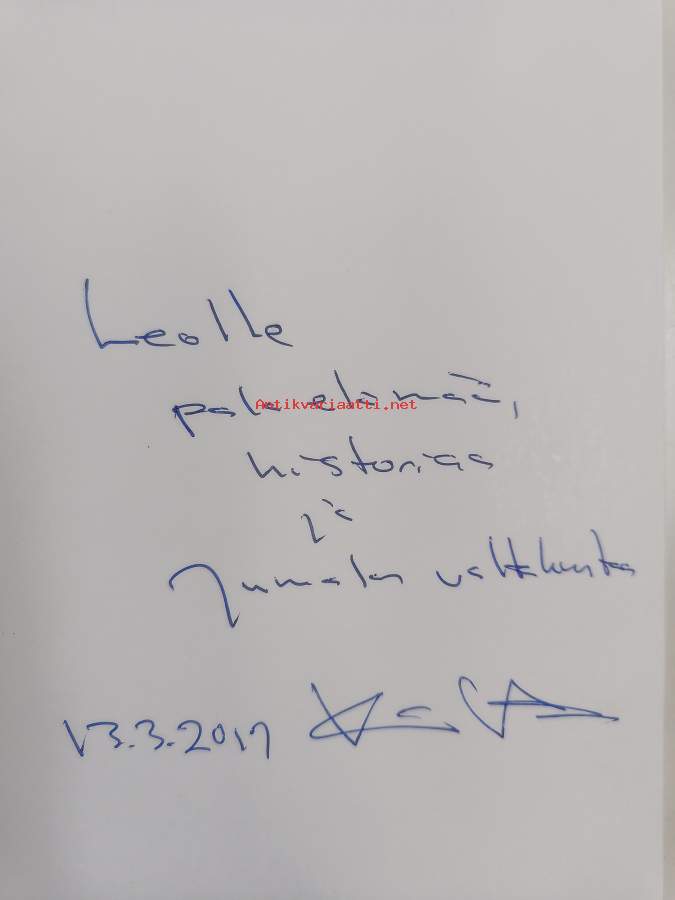 Leolle
pala elämää,
Antikvariaatti.net
historiaa
ja
Jumalan valtakuntaa
13.3.2017